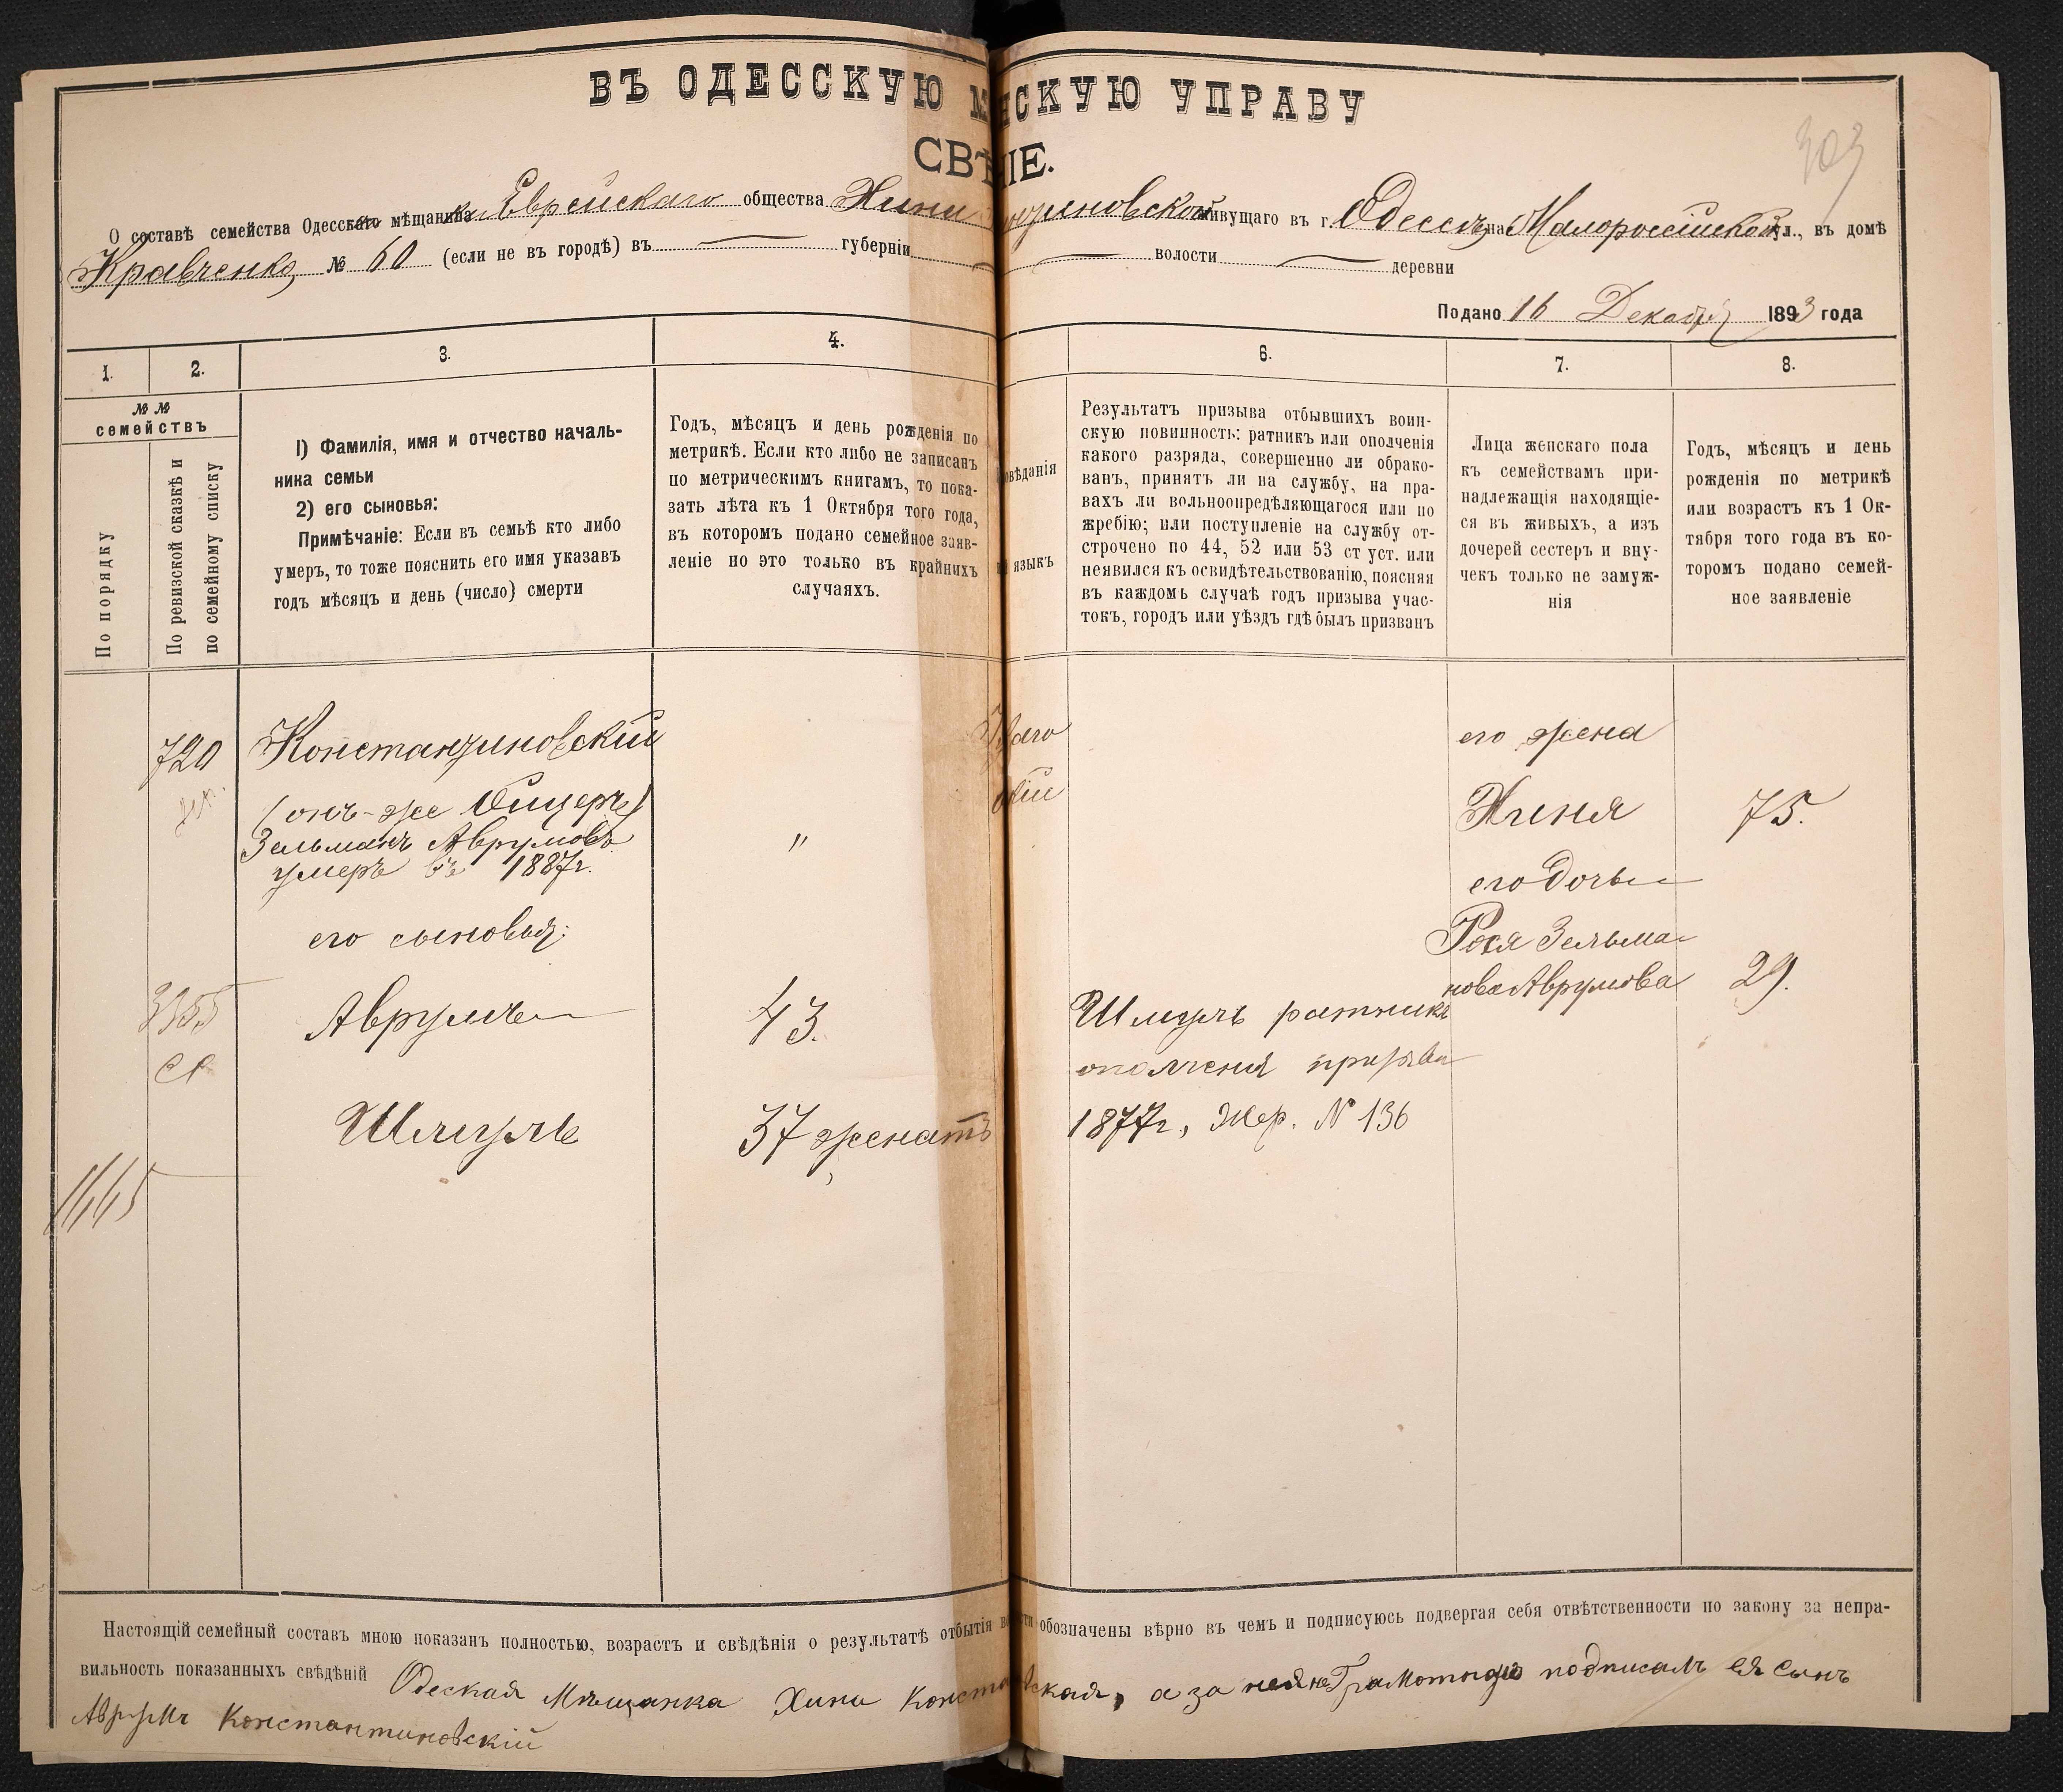 ВЪ ОДЕССКУЮ М НСКУЮ УПРАВУ
СВѢ НІЕ.
303
О составѣ семейства Одесскаго мѣщанина Еврейскаго общества Хини нзиновской живущаго въ г. Одессѣ на Малороссійской ул., въ домѣ
Кравченко № 60 (если не въ городѣ) въ губерніи волости деревни
Подано 16 Декабря 1893 года
1. 2. 3. 4. 6. 7. 8.
№№ семействъ
По порядку
По ревизской сказкѣ и
по семейному списку
1) Фамилія, имя и отчество началь-
ника семьи
2) его сыновья:
Примѣчаніе: Если въ семьѣ кто либо
умеръ, то тоже пояснить его имя указавъ
годъ мѣсяцъ и день (число) смерти
Годъ, мѣсяцъ и день рожденія по
метрикѣ. Если кто либо не записанъ
по метрическимъ книгамъ, то пока-
зать лѣта къ 1 Октября того года,
въ которомъ подано семейное заяв-
леніе но это только въ крайнихъ
случаяхъ.
овѣданія
языкъ
Результатъ призыва отбывшихъ воин-
скую повинность: ратникъ или ополченія
какого разряда, совершенно ли обрако-
ванъ, принятъ ли на службу, на пра-
вахъ ли вольноопредѣляющагося или по
жребію; или поступленіе на службу от-
строчено по 44, 52 или 53 ст уст. или
неявился къ освидѣтельствованію, поясняя
въ каждомъ случаѣ годъ призыва учас-
токъ, городъ или уѣздъ гдѣ былъ призванъ
Лица женскаго пола
къ семействамъ при-
надлежащія находящіе-
ся въ живыхъ, а изъ
дочерей сестеръ и вну-
чекъ только не замуж-
нія
Годъ, мѣсяцъ и день
рожденія по метрикѣ
или возрастъ къ 1 Ок-
тября того года въ ко-
торомъ подано семей-
ное заявленіе
720 Констанзиновскій его жена
(онъ-же Хиня 75.
Зельманъ Аврумовъ "
умеръ въ 1887г. его дочь
его сыновья: Рося Зельма-
нова Аврумова 29.
3355 Аврумъ 43. Шмуль ратникъ
ополченія призыва
Шмуль 37 женатъ 1877г., Жер. N 136
1665
Настоящій семейный составъ мною показанъ полностью, возрастъ и свѣдѣнія о результатѣ отбытія во сти обозначены вѣрно въ чемъ и подписуюсь подвергая себя отвѣтственности по закону за непра-
вильность показанныхъ свѣдѣній Одеская Мѣщанка Хини Конста вская, а за нея неграмотную подписалъ ея сынъ
Аврумъ Константиновскій